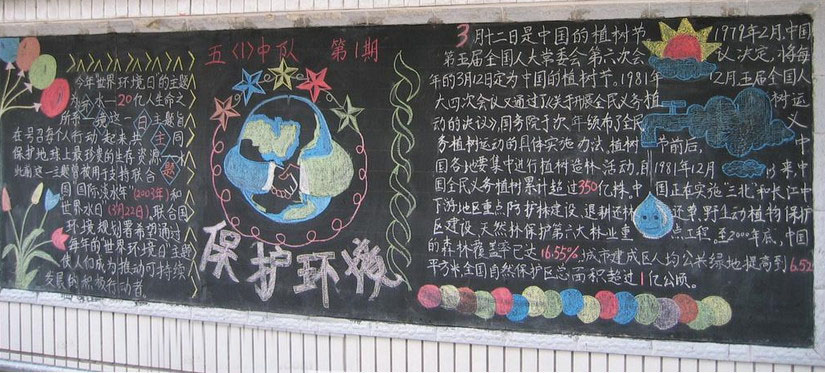 今年世界环境日的主题
为"水—20亿人生命之
所"。
在号召每个人行动起来共同
保护地球上最珍贵的生存资源—水
此届这一主题曾被用于支持联合
国国际淡水年"(2003年)和
世界水日(3月22日)。联合国
环境规划署希望通过
每年的世界环境日主题
使人们成为推动可持续
发展的积极行动者
五〈1〉中队 第1期
保护环境
3月十二日是中国的植树节。1979年2月,中国
第五届全国人大常委会第六次会议决定,将每
年的3月12日定为中国的植树节。1981年12月五届全国人
大四次会议通过了《关于开展全民义务植树运
动的决议》,国务院于次年颁布了全民义
务植树运动的具体实施办法,植树节前后,中
国各地要集中进行植树造林活动,自1981年12月以来,中
国全民义务植树累计超过350亿株。中国正在实施"三北"和长江中
下游地区重点防护林建设、退耕还林还草、野生动植物保护
区建设、天然林保护等六大林业重点工程。至2000年底,中国
的森林覆盖率已达16.55%,城市建成区人均公共绿地提高到6.52
平方米,全国自然保护区总面积超过1亿公顷。